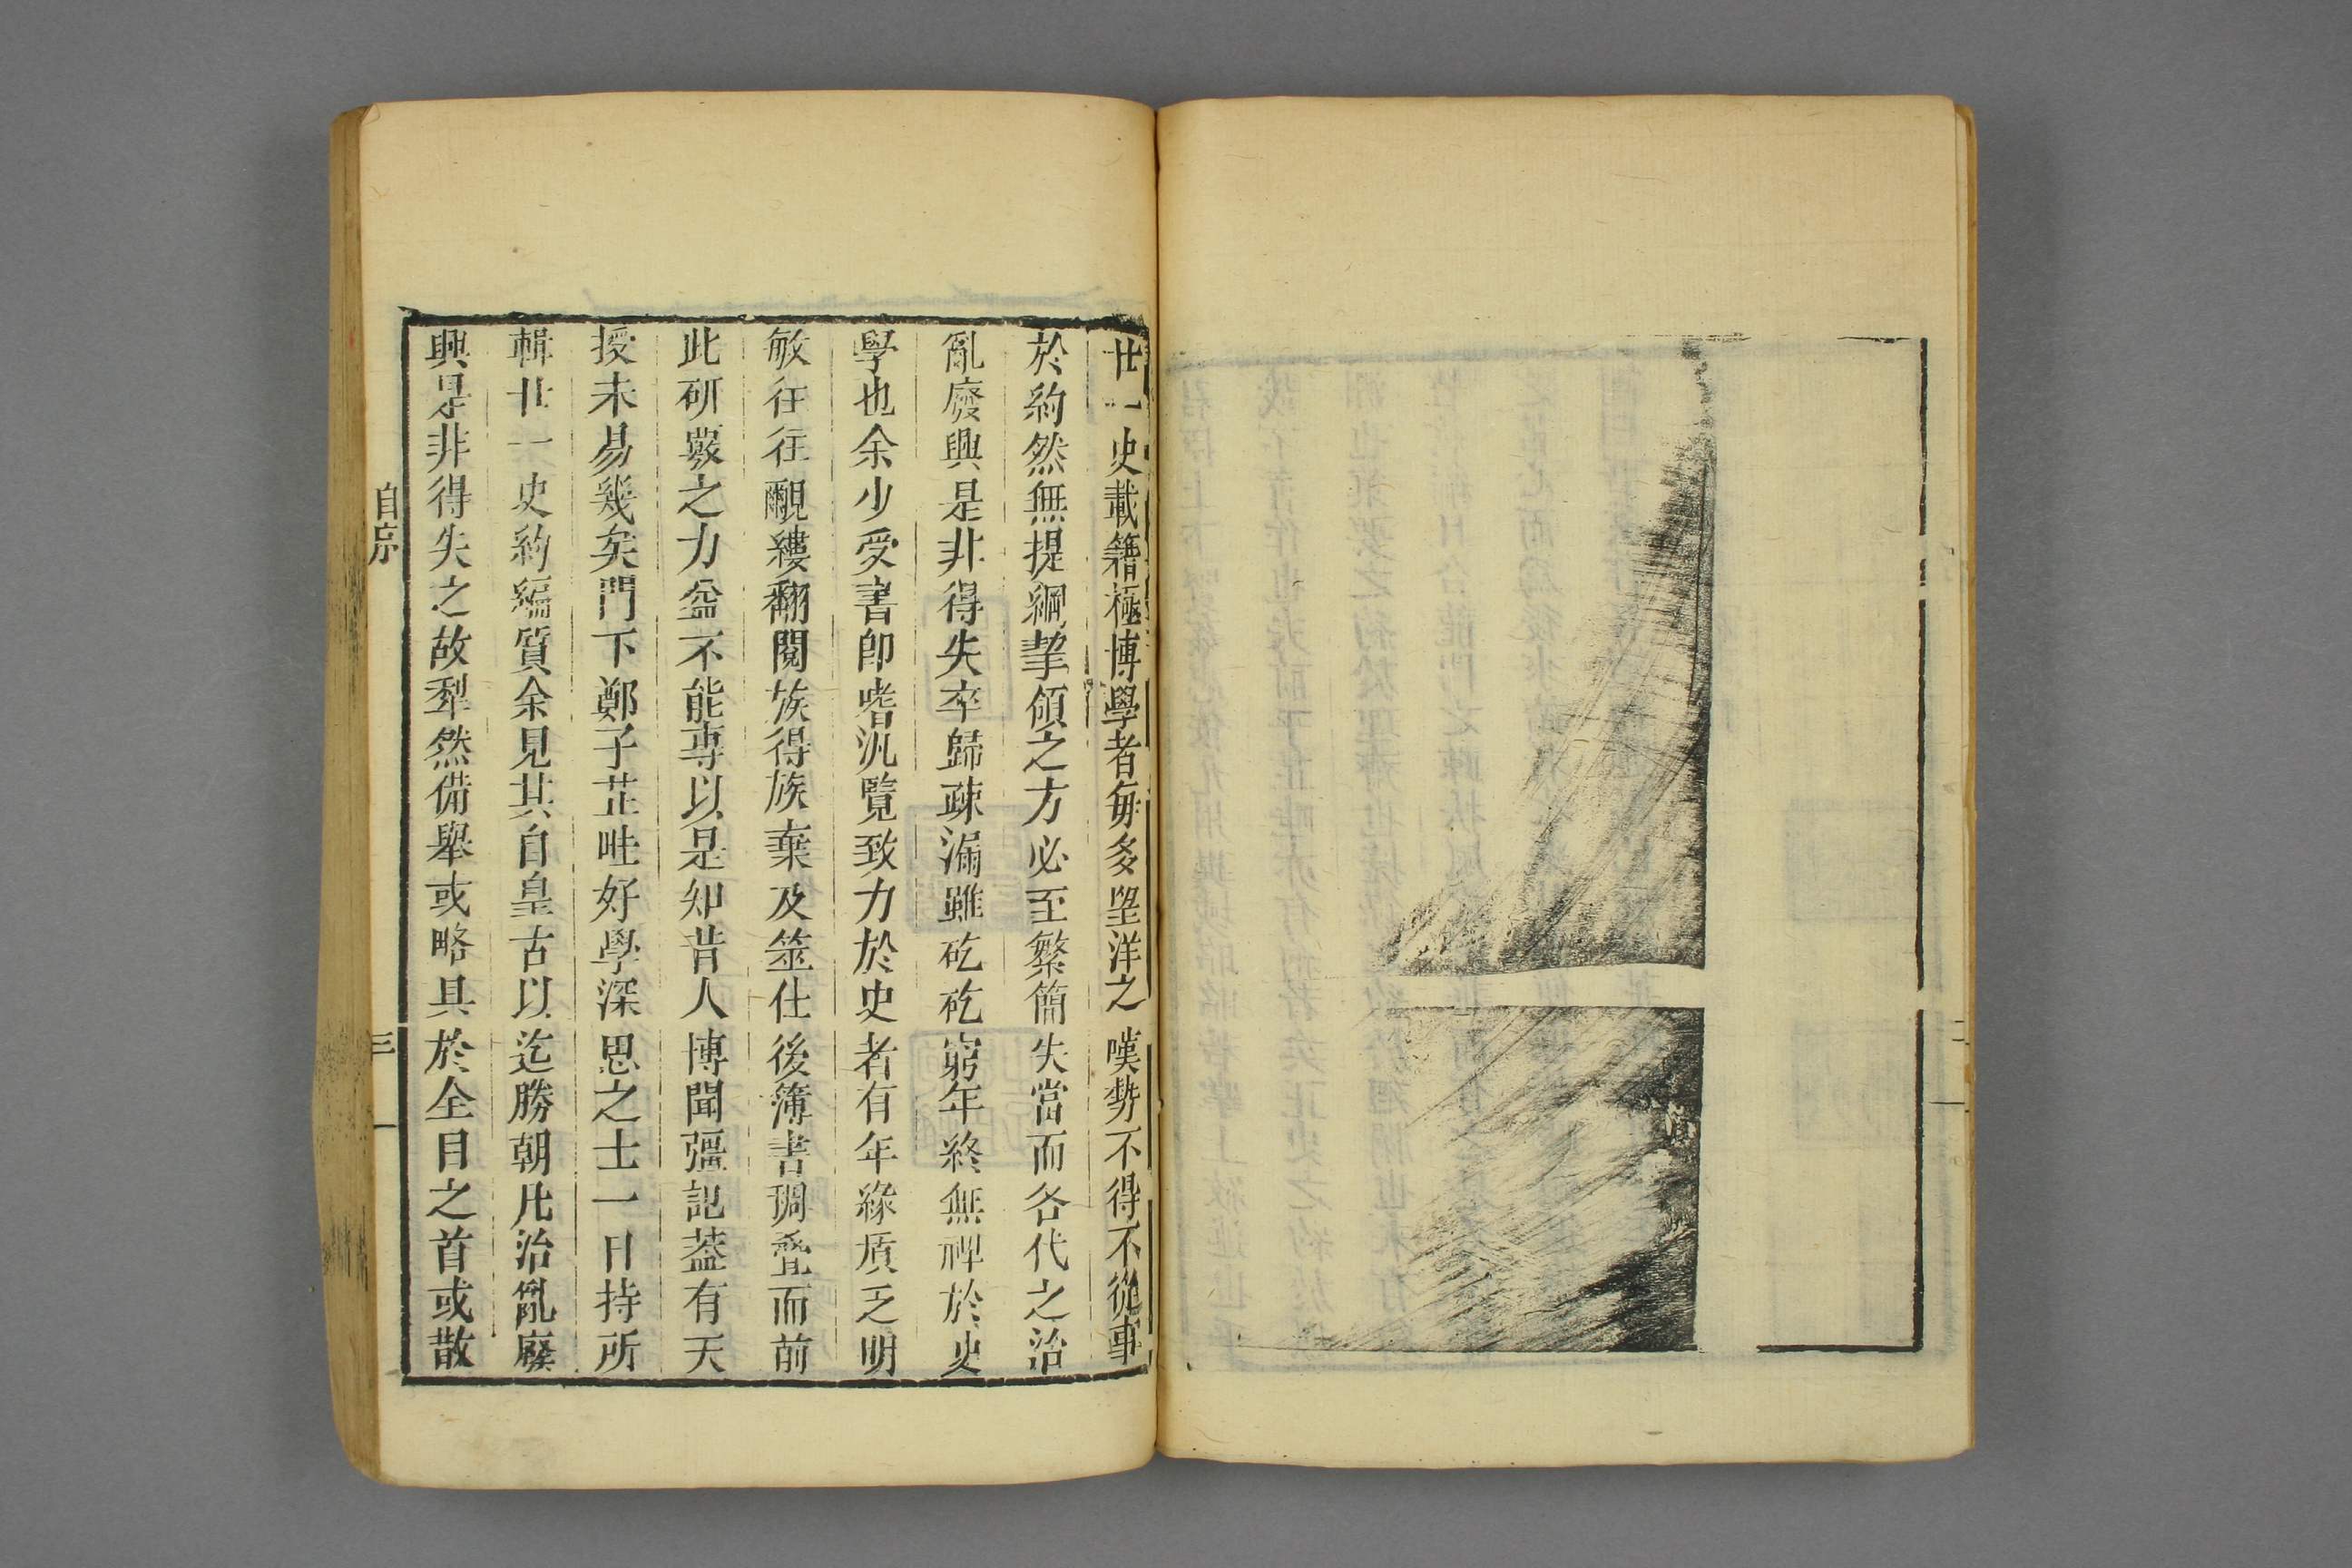 廿一史載籍極博學者每多望洋之嘆勢不得不從事
於約然無提綱挈領之方必至繁簡失當而各代之治
亂廢興是非得失卒歸疎漏雖矻矻窮年終無裨於史
學也余少受書卽嗜汎覽致力於史者有年緣質乏明
敏往往覼縷翻閱旋得旋棄及筮仕後簿書稠疊而前
此研覈之力益不能專以是知昔人博聞彊記葢有天
授未易幾矣門下鄭子芷畦好學深思之士一日持所
輯廿一史約編質余見其自皇古以迄勝朝凡治亂廢
興是非得失之故犁然備舉或略具於全目之首或散
自序
三
二